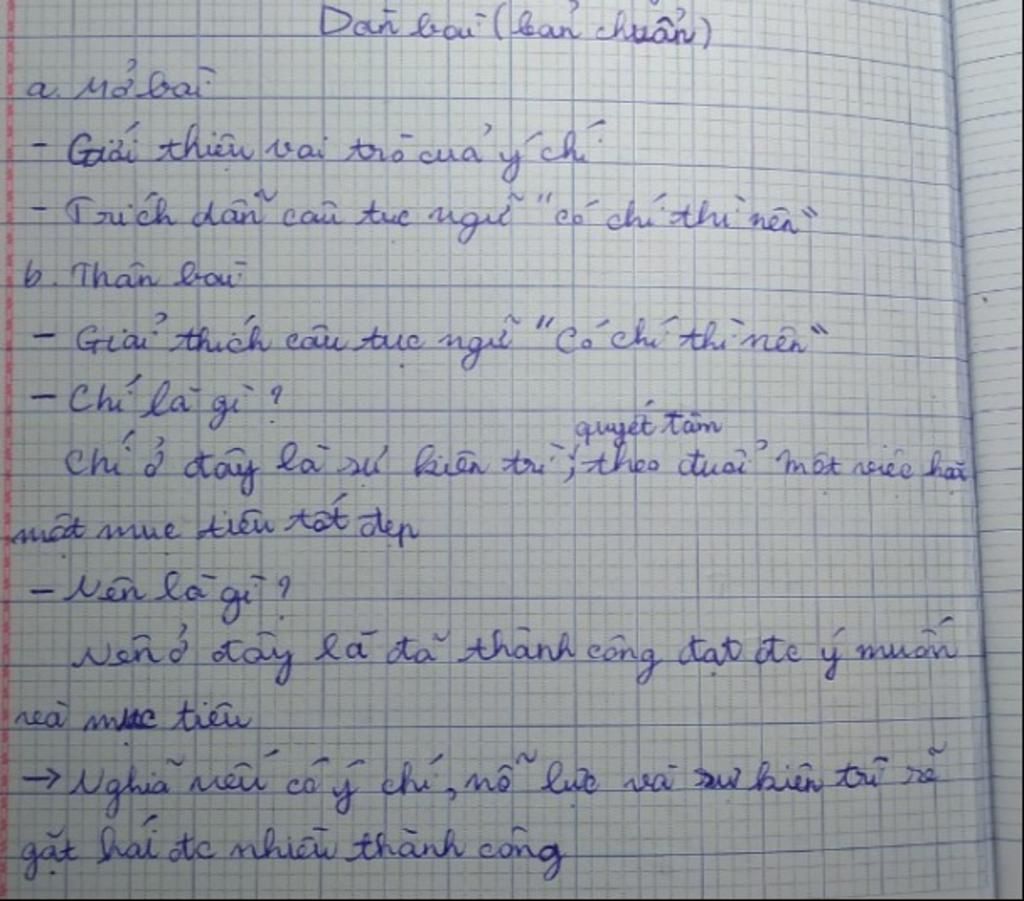 Dàn bài (bản chuẩn)
a. Mở bài
- Giới thiệu vai trò của ý chí
- Trích dẫn câu tục ngữ "có chí thì nên"
b. Thân bài
- Giải thích câu tục ngữ "Có chí thì nên"
- Chí là gì?
quyết tâm
Chí ở đây là sự kiên trì, theo đuổi một việc hai
một mục tiêu tốt đẹp
- Nên là gì?
Nên ở đây là đã thành công đạt đc ý muốn
và mục tiêu
→ Nghĩa nếu có ý chí, nỗ lực và sự kiên trì sẽ
gặt hái đc nhiều thành công